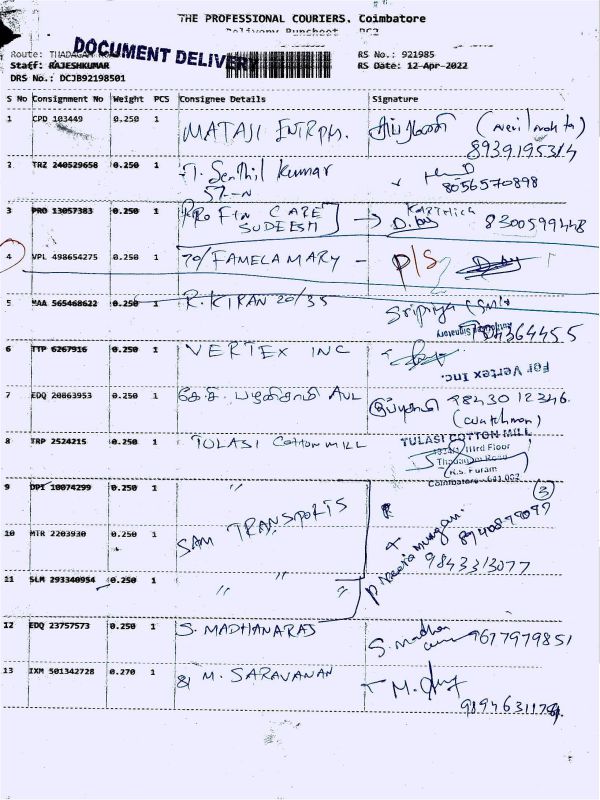 THE PROFESSIONAL COURIERS. Coimbatore
Delivery Runsheet
DOCUMENT DELIVERY
Route: THADAGAM
Staff: RAJESHKUMAR
DRS No.: DCJB92198501
RS No.: 921985
RS Date: 12-Apr-2022
S No Consignment No Weight PCS Consignee Details Signature
1 CPD 103449 0.250 1 MATAJI ENTRPH.
8939195314
2 TRZ 240529658 0.250 1 Senthil Kumar
8056570898
3 PRO 13057383 0.250 1 PRO FIN CARE
SUDEESH
Karthick
8300599448
4 VPL 498654275 0.250 1 70/ FAMELA MARY - D/S
5 MAA 565468622 0.250 1 R. KIRAN 20/35
Sripriya
Authorised Signatory
6 TTP 6267916 0.250 1 VERTEX INC
For Vertex Inc.
7 EDQ 20863953 0.250 1 கே.சி. பழனிசாமி AVL
98430 12346
(watchman)
8 TRP 2524215 0.250 1 TULASI Cotton MILL
TULASI COTTON MILL
IIIrd Floor
Thadagam Road
R.S. Puram
Coimbatore - 641 002
9 DPI 10074299 0.250 1 "
3
10 MTR 2203930 0.250 1 SAM TRANSPORTS
9843313077
11 SLM 293340954 0.250 1 " " "
12 EDQ 23757573 0.250 1 S. MADHANARAJ
S. madhan
9677979851
13 IXM 501342728 0.270 1 & M. SARAVANAN
M.